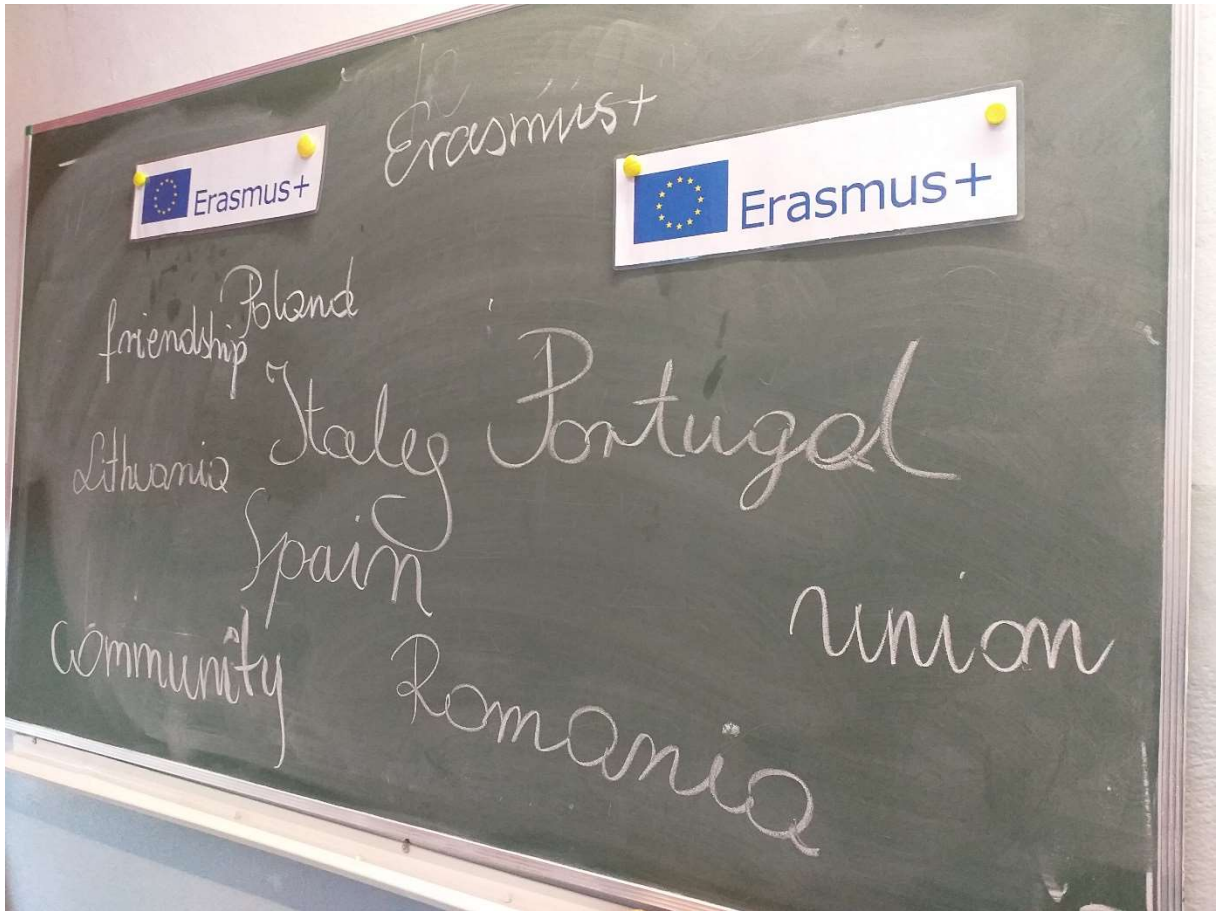 Erasmus+
Erasmus+
Erasmus+
Poland
friendship
Italy
Portugal
Lithuania
Spain
union
community
Romania